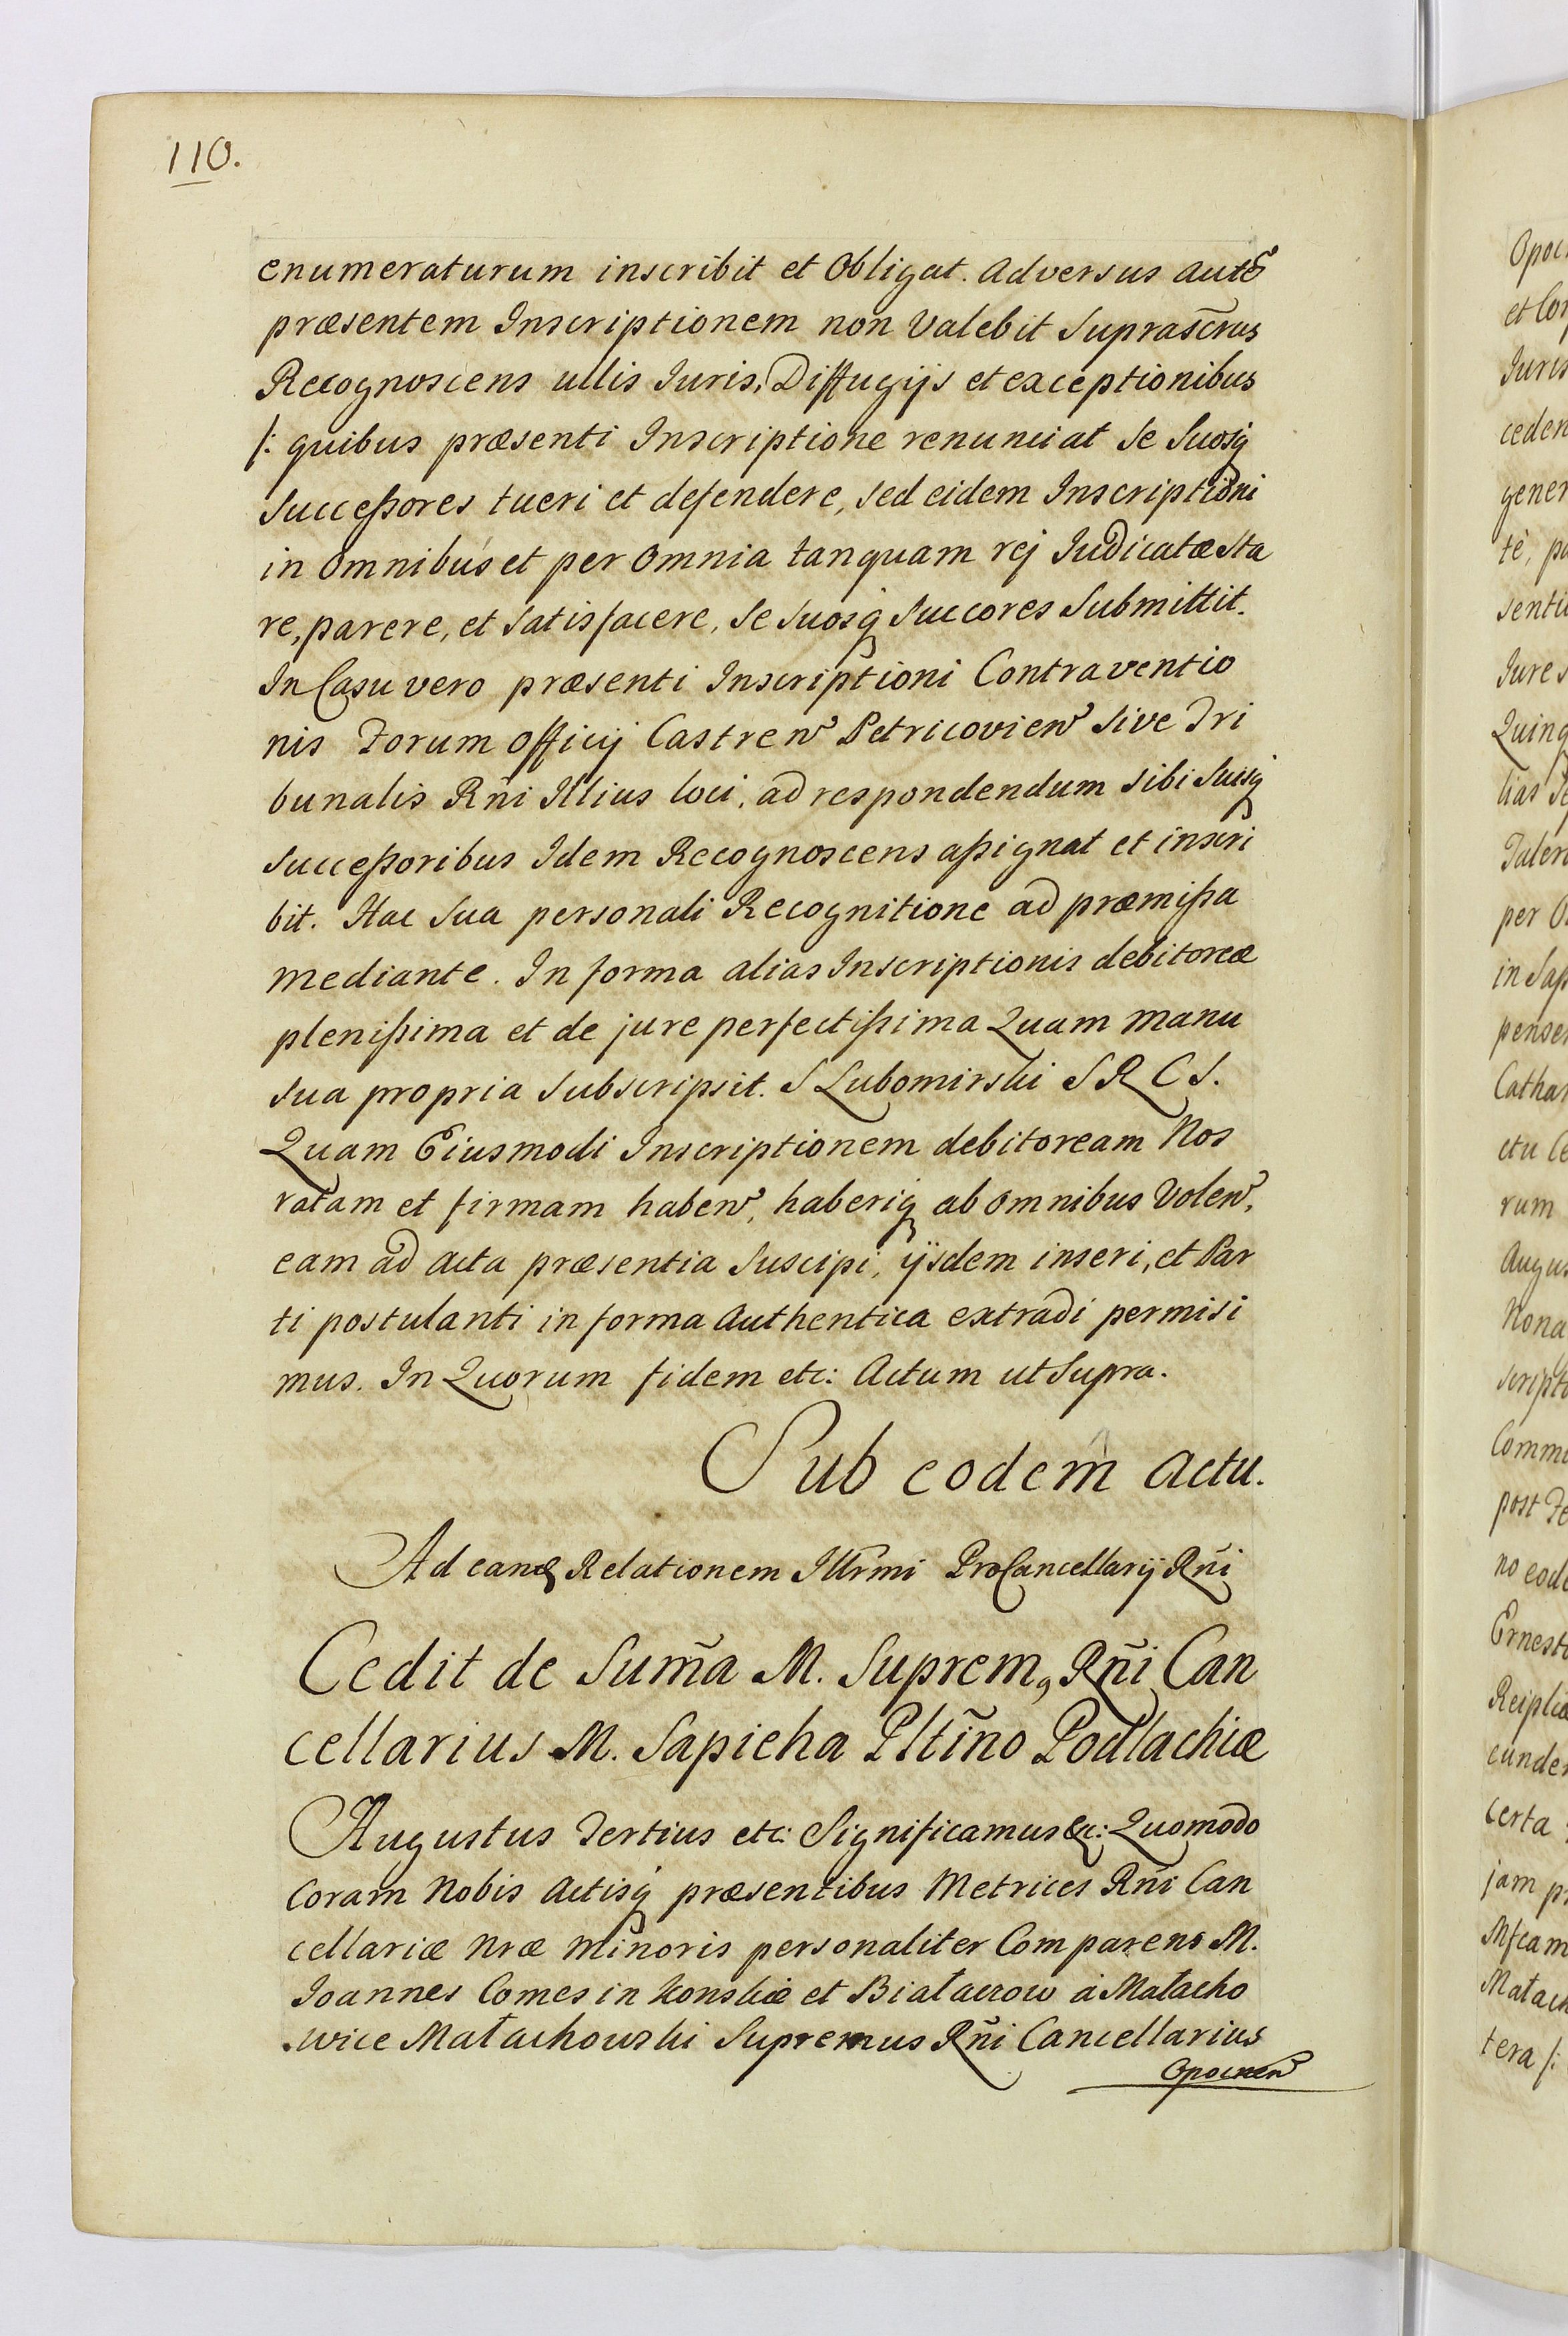 110.
enumeraturum inscribit et Obligat. Adversus autẽ
præsentem Inscriptionem non Valebit Suprasc̃rus
Recognoscens ullis Iuris, Diffugijs et exceptionibus
/: quibus præsenti Inscriptione renunciat Se Suosq̃
Succeßores tueri et defendere, sed eidem Inscriptioni
in Omnibus et per Omnia tanquam rej Iudicatæ sta
re, parere, et Satisfacere, Se Suosq̃ Succores Submittit.
In Casu vero præsenti Inscriptioni Contraventio
nis Forum Officij Castren̛ Petricovien̛ Sive Tri
bunalis Rñi Illius loci, ad respondendum sibi Suisq̃
Succeßoribus Idem Recognoscens aßignat et inscri
bit. Hac Sua personali Recognitione ad præmißa
mediante. In forma alias Inscriptionis debitoreæ
pleniẞima et de jure perfectißima Quam manu
sua propria Subscripsit. S Lubomirski S R C S.
Quam Eiusmodi Inscriptionem debitoream Nos
ratam et firmam haben̛, haberiq̃ ab Omnibus Volen̛,
eam ad acta præsentia Suscipi, ijsdem inseri, et Par
ti postulanti in forma Authentica extradi permisi
mus. In Quorum fidem etc: Actum ut Supra.
Sub eodem Actu.
Ad eand Relationem Illr̃mi ProCancellarij Rñi
Cedit de Sum̃a M. Suprem, Rñi Can
cellarius M. Sapieha Pltĩno Podlachiæ
Augustus Tertius etc: Significamus &c: Quomodo
Coram Nobis Actisq̃ præsentibus Metrices Rñi Can
cellariæ Nræ Minoris personaliter Comparens M.
Ioannes Comes in Konskie et Białaczow à Małacho
wice Małachowski Supremus Rñi Cancellarius
Opocnen̛
Opoc
et Cor
Iuris
ceden
gener
tè, pa
senti
Jure s
Quinq
lias Se
Taler
per O
in Saß
penser
Cathar
ctu Ce
rum
Augus
Nona
script
Commi
post Fe
no eode
Ernesto
Reiplicæ
eunder
certa
jam pr
Mfcam
Małach
tera /: